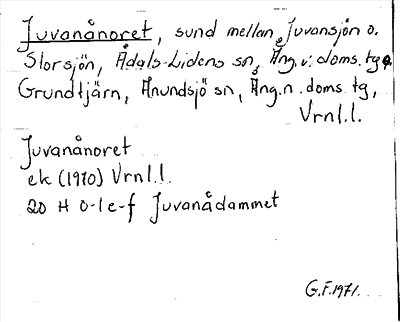 Juvanånoret, sund mellan Juvansjön o.
Storsjön, Ådals-Lidens sn, Äng. v. doms. tg o.
Grundtjärn, Anundsjö sn, Äng. n. doms. tg,
Vrnl.l.
Juvanånoret
ek (1970) Vrnl.l.
20 H 0-1 e-f Juvanådammet
G.F. 1971.